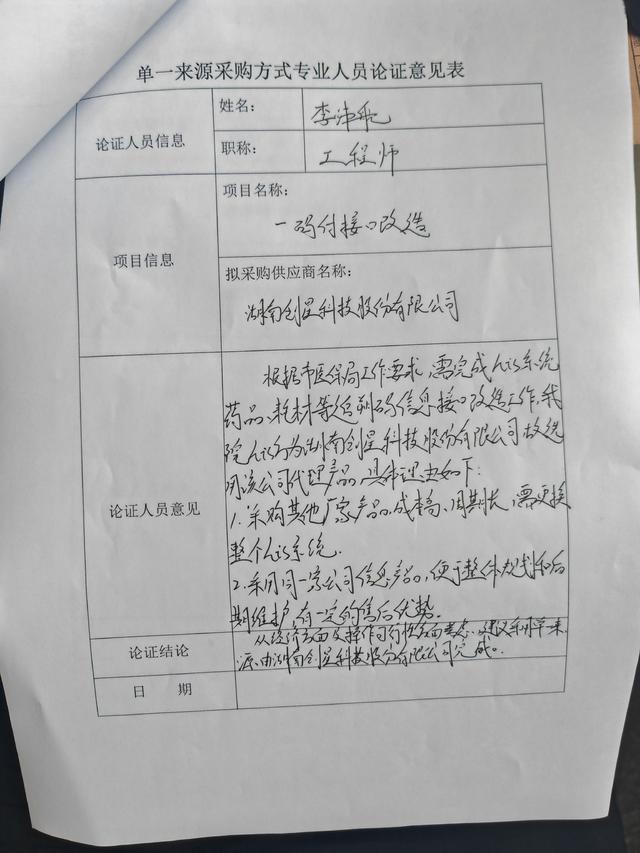 单一来源采购方式专业人员论证意见表
论证人员信息
姓名:
李
职称:
工程师
项目信息
项目名称:
一码付接口改造
拟采购供应商名称:
湖南创星科技股份有限公司
论证人员意见
根据市医保局工作要求,需完成his系统
药品、耗材等追溯码信息接口改造工作,我
院his为湖南创星科技股份有限公司故选
用该公司代理产品,具体理由如下:
1.采购其他厂家产品,成本高、周期长,需更换
整个his系统.
2.采用同一家公司信息产品,便于整体规划和后
期维护,有一定的售后优势.
论证结论
从经济方面及操作可行性方面考虑,建议采用单一来
源,由湖南创星科技股份有限公司完成。
日 期